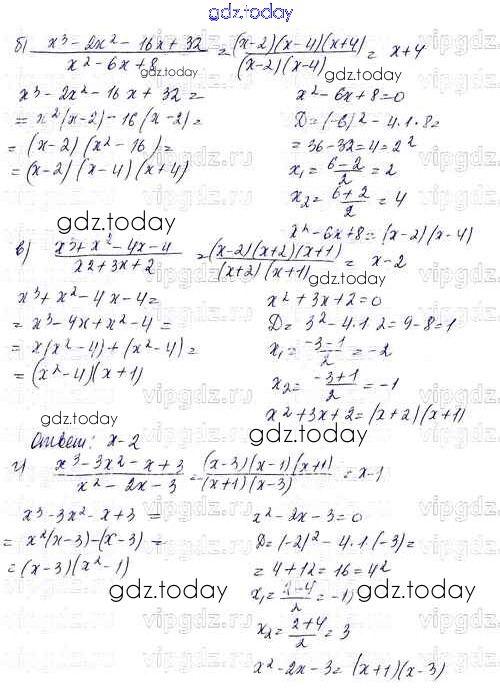 gdz.today
б) (x³ - 2x² - 16x + 32)/(x² - 6x + 8) = ((x-2)(x-4)(x+4))/((x-2)(x-4)) = x+4
x³ - 2x² - 16x + 32 =
= x²(x-2) - 16(x-2) =
= (x-2)(x² - 16) =
= (x-2)(x-4)(x+4)
x² - 6x + 8 = 0
D = (-6)² - 4·1·8 =
= 36 - 32 = 4 = 2²
x₁ = (6-2)/2 = 2
x₂ = (6+2)/2 = 4
x² - 6x + 8 = (x-2)(x-4)
gdz.today
gdz.today
в) (x³ + x² - 4x - 4)/(x2 + 3x + 2) = ((x-2)(x+2)(x+1))/((x+2)(x+1)) = x-2
x³ + x² - 4x - 4 =
= x³ - 4x + x² - 4 =
= x(x² - 4) + (x² - 4) =
= (x² - 4)(x+1)
x² + 3x + 2 = 0
D = 3² - 4·1·2 = 9 - 8 = 1
x₁ = (-3-1)/2 = -2
x₂ = (-3+1)/2 = -1
x² + 3x + 2 = (x+2)(x+1)
gdz.today
gdz.today
Ответ: x-2
г) (x³ - 3x² - x + 3)/(x² - 2x - 3) = ((x-3)(x-1)(x+1))/((x+1)(x-3)) = x-1
x³ - 3x² - x + 3 =
= x²(x-3) - (x-3) =
= (x-3)(x² - 1)
x² - 2x - 3 = 0
D = (-2)² - 4·1·(-3) =
= 4 + 12 = 16 = 4²
x₁ = (2-4)/2 = -1
x₂ = (2+4)/2 = 3
x² - 2x - 3 = (x+1)(x-3)
gdz.today
gdz.today
gdz.today
vipgdz.ru